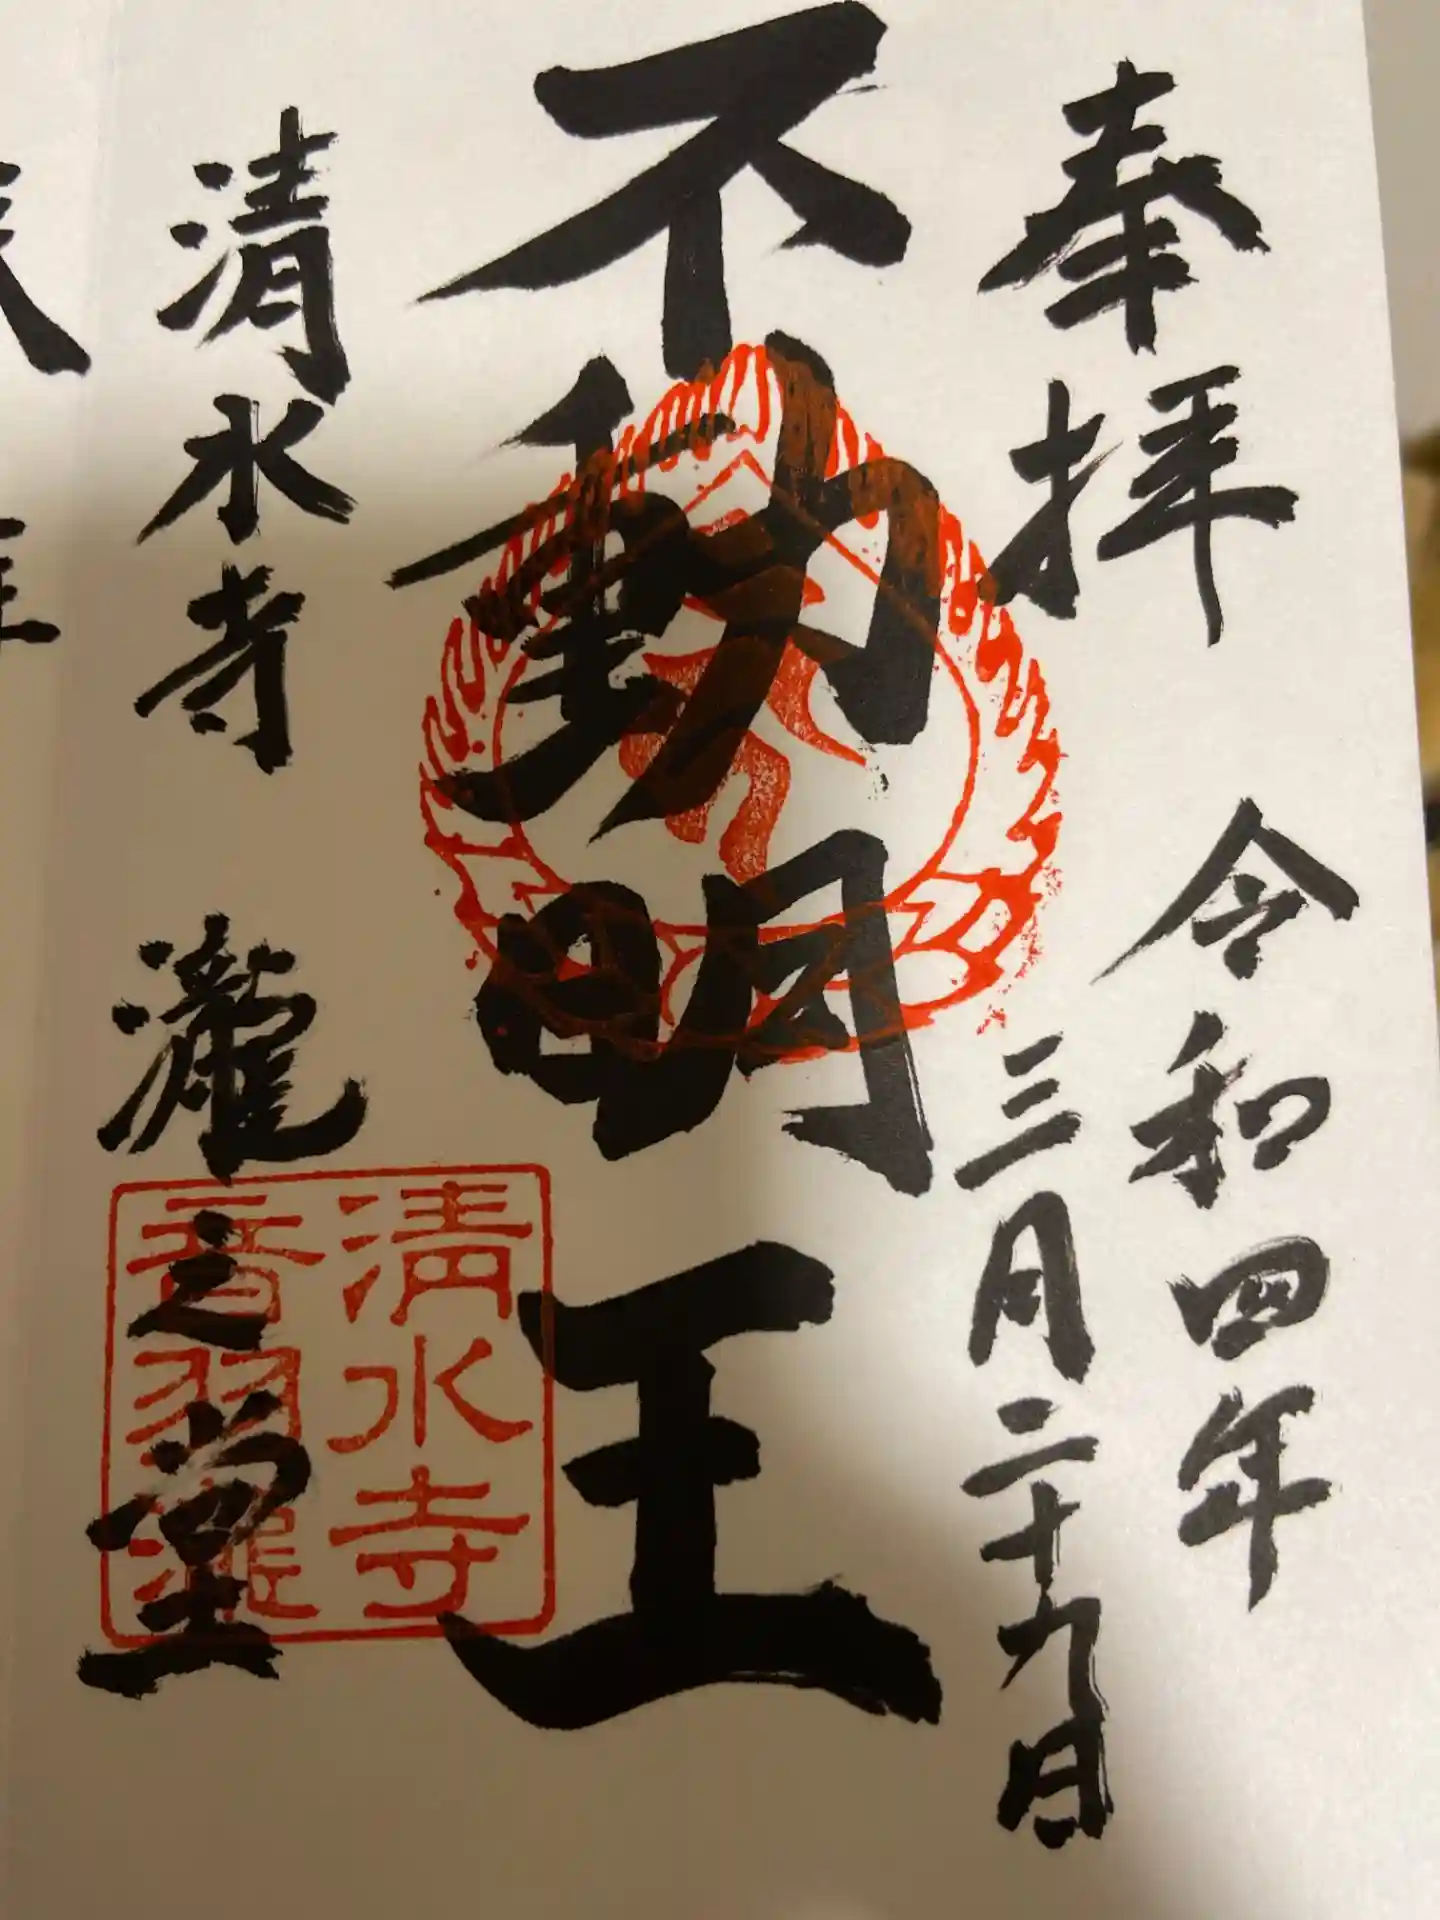 奉拝
令和四年
三月二十九日
不動明王
清水寺 瀧之堂
清水寺
音羽瀧